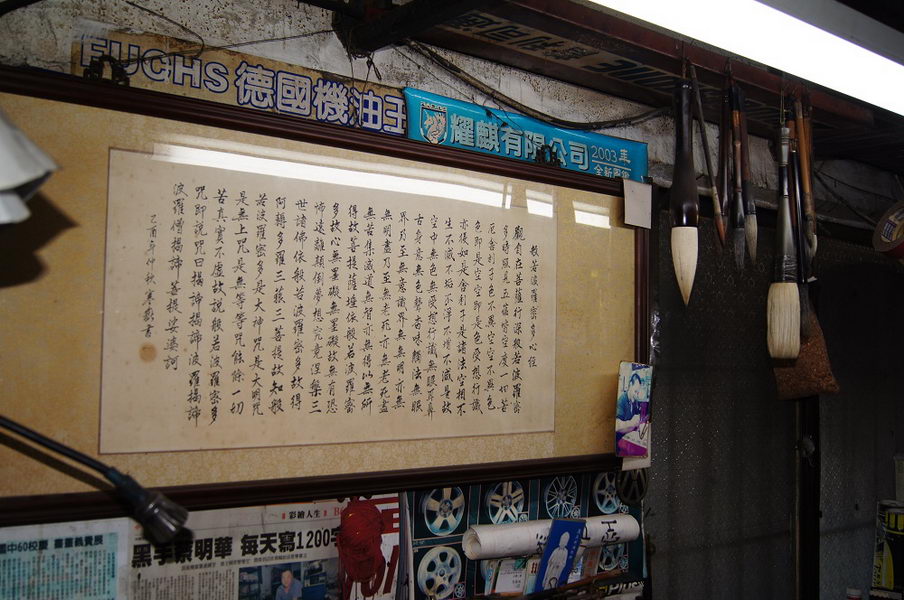 FUCHS 德國機油王
耀麒有限公司 2003年
全新
般若波羅密多心經
觀自在菩薩行深般若波羅密
多時照見五蘊皆空度一切苦
厄舍利子色不異空空不異色
色即是空空即是色受想行識
亦復如是舍利子是諸法空相不
生不滅不垢不淨不增不減是故
空中無色無受想行識無眼耳鼻
舌身意無色聲香味觸法無眼
界乃至無意識界無無明亦無
無明盡乃至無老死亦無老死盡
無苦集滅道無智亦無得以無所
得故菩提薩埵依般若波羅密
多故心無罣礙無罣礙故無有恐
怖遠離顛倒夢想究竟涅槃三
世諸佛依般若波羅密多故得
阿耨多羅三藐三菩提故知般
若波羅密多是大神咒是大明咒
是無上咒是無等等咒能除一切
苦真實不虛故說般若波羅密多
咒即說咒曰揭諦揭諦波羅揭諦
波羅僧揭諦菩提娑婆訶
乙酉年仲秋 書
彩繪人生
黑手 明華 每天寫1200字
中60校慶